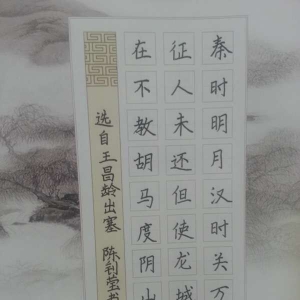 秦时明月汉时关万
征人未还但使龙城
在不教胡马度阴山
选自王昌龄出塞 陈利莹书